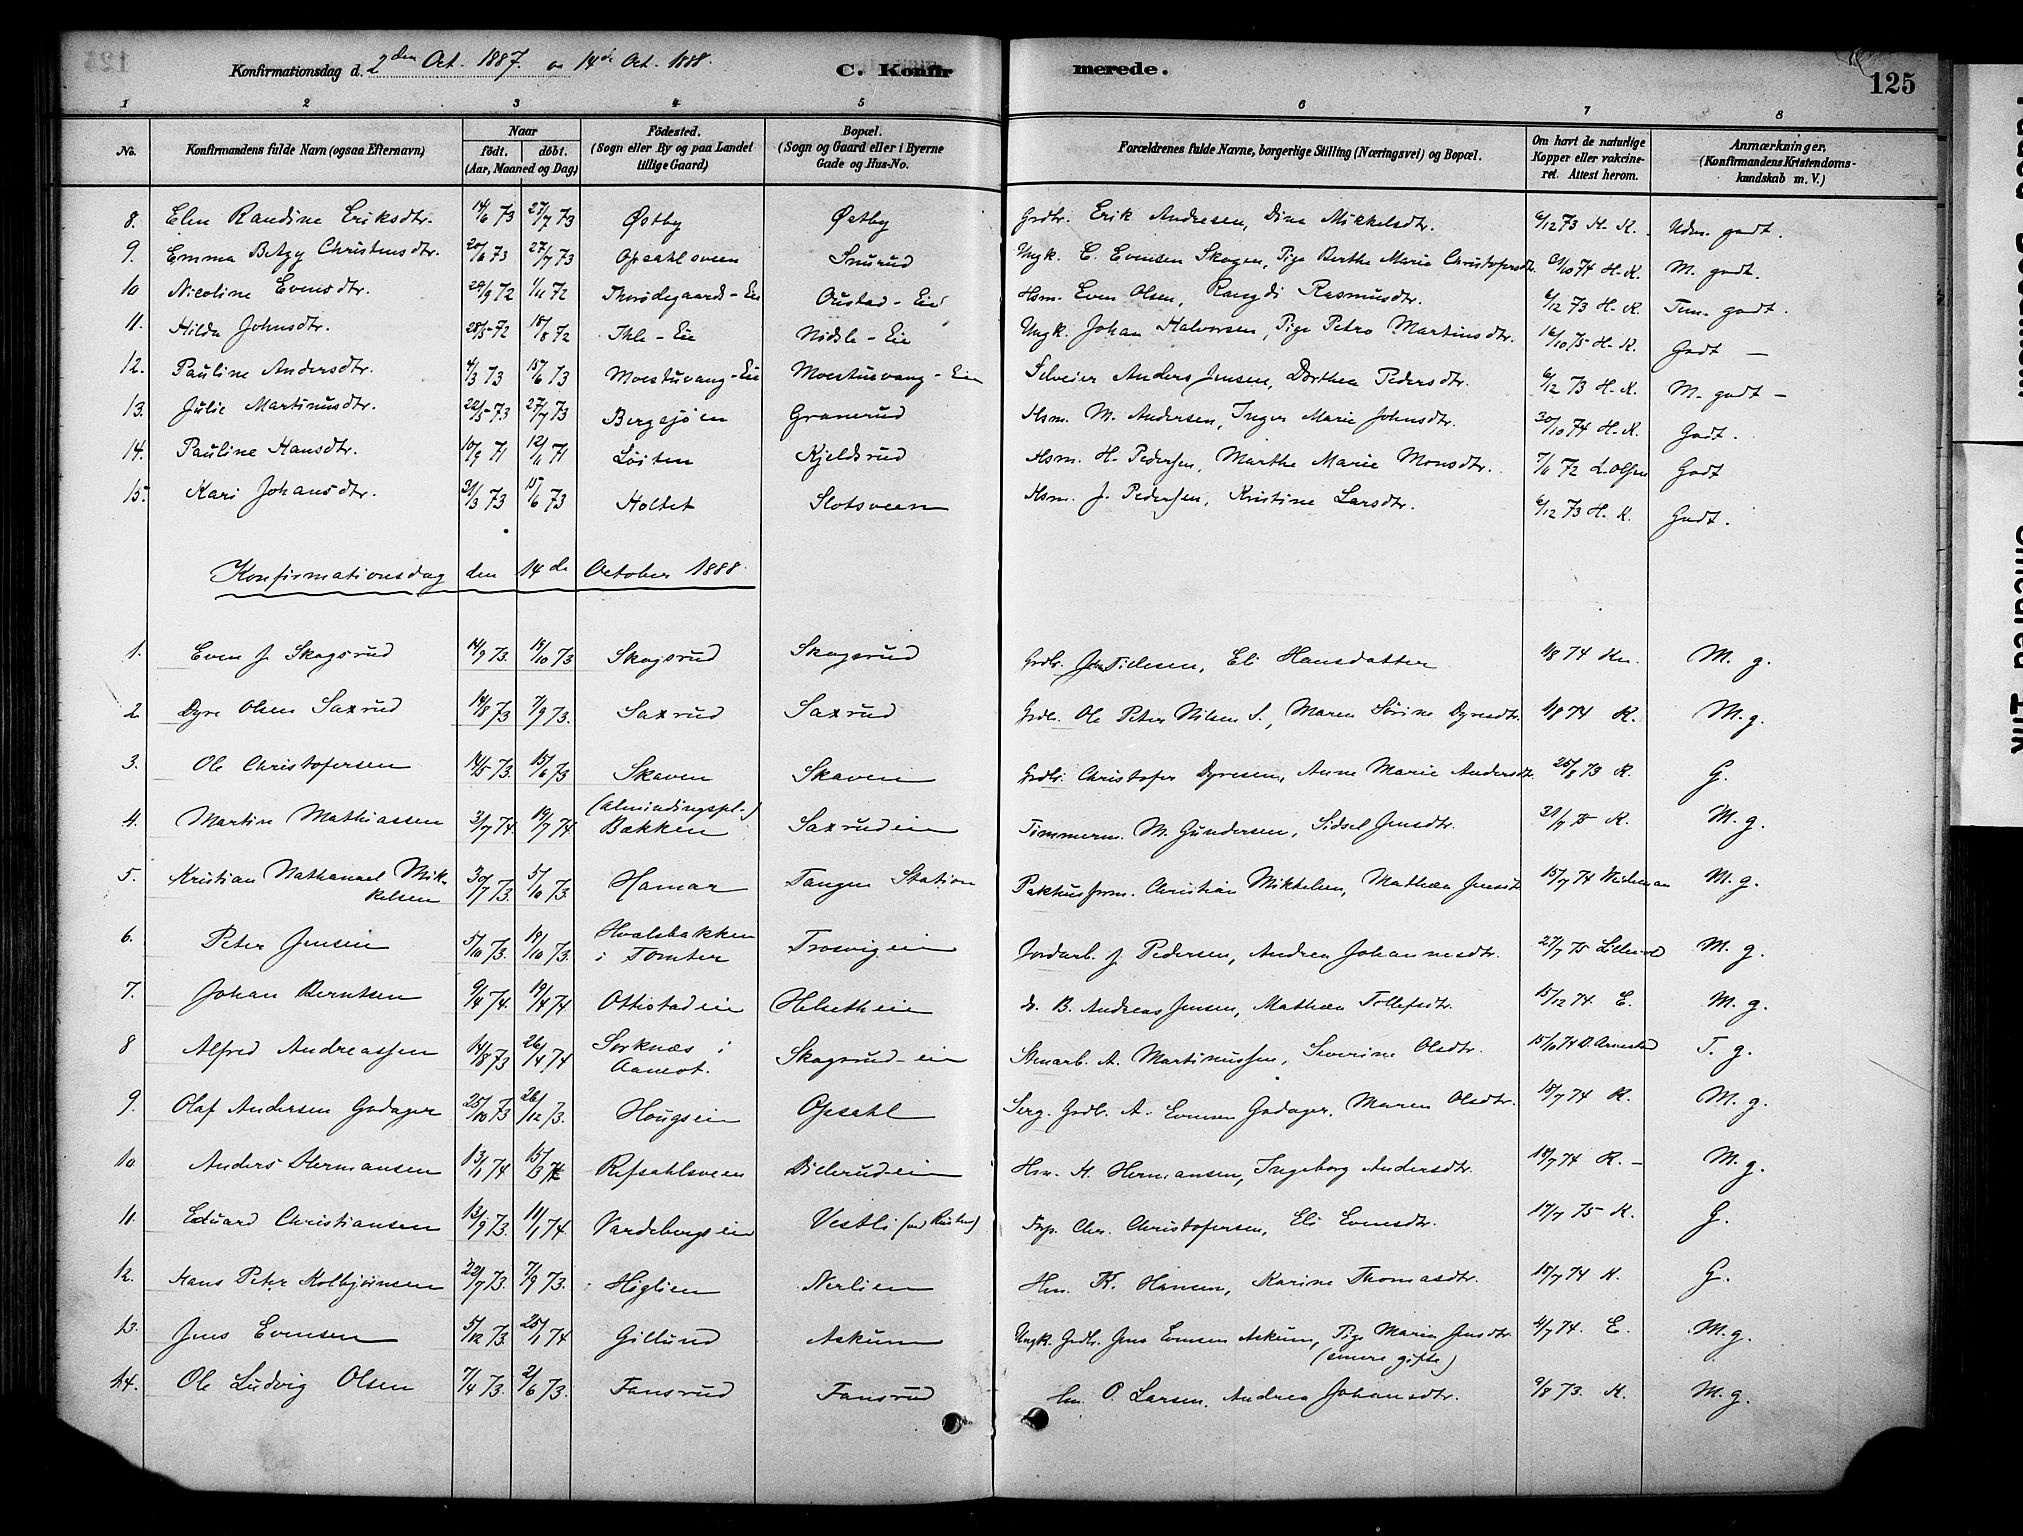 Konfirmationsdag d. 2den Oct. 1887. og 14de Oct. 1888. C. Konfirmerede. 125
1 2 3 4 5 6 7 8
No. Konfirmandens fulde Navn (ogsaa Efternavn) Naar født. døbt. (Aar, Maaned og Dag) Fødested. (Sogn eller By og paa Landet tillige Gaard) Bopæl. (Sogn og Gaard eller i Byerne Gade og Hus-No. Forældrenes fulde Navne, borgerlige Stilling (Næringsvei) og Bopæl. Om havt de naturlige Kopper eller vakcineret. Attest herom. Anmærkninger, (Konfirmandens Kristendomskundskab m. V.)
8. Elen Randine Eriksdtr. 14/6 73 27/7 73 Østby Østby Grdbr. Erik Andresen, Dina Mikkelsdtr. 6/12 73 H. K. Udm. godt.
9. Emma Betzy Christensdtr. 20/6 73 27/7 73 Opsahlsveen Snurud Ungk. C. Evensen Skogen, Pige Berthe Marie Christofersdtr. 21/10 74 H. K. M. godt.
10 Nicoline Evensdtr. 29/9 72 1/11 72 Thorødegaards-Eie Oustad-Eie Hsm. Even Olsen, Rangdi Rasmusdtr. 6/12 73 H. K. Tem. godt.
11. Hilda Johnsdtr. 28/5 72 18/8 72 Ihle-Eie Nidsle-Eie Ungk. Johan Halvorsen, Pige Petra Martinsdtr. 16/10 75 H. K. Godt —
12. Pauline Andersdtr. 4/3 73 15/6 73 Moestuvang-Eie Moestuvang-Eie Selveier Anders Jensen, Dorthea Pedersdtr. 6/12 73 H. K. M. godt —
13. Julie Martinusdtr. 22/5 73 27/7 73 Bergsjøen Granerud Hsm. M. Andersen, Inger Marie Johnsdtr. 30/10 74 H. K. Godt.
14. Pauline Hansdtr. 10/9 71 12/11 71 Løiten Kjeldsrud Hsm. H. Pedersen, Marthe Marie Monsdtr. 7/11 72 L. Olsen Godt
15. Kari Johansdtr. 21/3 73 15/6 73 Holtet Slotsveen Hsm. J. Pedersen, Kristine Larsdtr. 6/12 73 H. K. Godt.
Konfirmationsdag den 14de October 1888.
1. Even J. Skogsrud 14/9 73. 19/10 73 Skogsrud Skogsrud Grdbr. Jens Tidesen, Eli Hansdatter 1/8 74 M. g.
2. Dyre Olsen Saxrud 14/8 73 7/9 73. Saxrud Saxrud Grdbr. Ole Peter Nilsen S., Maren Sørine Dyresdtr. 1/8 74 K. M. g.
3. Ole Christofersen 14/5 73. 15/6 73 Skaven Skaven Grdbr. Christofer Dyresen, Anne Marie Andersdtr. 25/8 73 K. G.
4. Martin Mathiassen 3/7 74. 19/7 74 (Almindingspl.) Bakken Saxrudeie Tømmerm. M. Gundersen, Sidsel Jensdtr. 31/7 75 K. M. g.
5. Kristian Nathanael Mikkelsen 30/7 73. 5/10 73. Hamar Tangen Station Pakhusform. Christian Mikkelsen, Mathea Jensdtr. 15/7 74 M. g.
6. Peter Jensen 5/10 73. 19/10 73. Hvalsbakken i Tomter Trosvigeie Jordarb. J. Pedersen, Andrea Johannesdtr. 27/7 75 M. g.
7. Johan Berntsen 9/4 74. 19/4 74 Ottestadeie Helsetheie do. B. Andreas Jensen, Mathea Tollefsdtr. 15/12 74. E. M. g.
8 Alfred Andreassen 14/8 73 26/4 74 Sorknæs i Aamot. Skogsrud-eie Stenarb. A. Martinussen, Severine Olsdtr. 15/10 74 T. g.
9. Olaf Andersen Godager 25/10 73 26/12 73. Hougseie Opsahl Serg. Grdbr. A. Evensen Godager, Maren Olsdtr. 18/7 74 K. M. g.
10 Anders Hermansen 13/1 74 15/3 74 Refsahlsveen Bilerud-eie Hsm. H. Hermansen, Ingeborg Andersdtr. 18/7 74 K. — M. g.
11. Eduard Christiansen 13/9 73. 11/1 74. Vardebergseie Vestli Insp. Chr. Christofersen, Eli Evensdtr. 17/7 75 K. G.
12. Hans Peter Kolbjørnsen 22/7 73. 7/9 73. Høglien Nerlien Hsm. K. Hansen, Karine Thomasdtr. 18/7 74 K. G.
13. Jens Evensen 5/12 73. 25/1 74 Gillund Askum Ungk. Grdbr. Jens Evensen Askum, Pige Maria Jensdtr. (senere gifte) 4/7 74. E. M. g.
14. Ole Ludvig Olsen 7/4 73. 2/6 73. Fansrud Fansrud Hsm. O. Larsen, Andrea Johansdtr. 9/8 73. K. M. g.